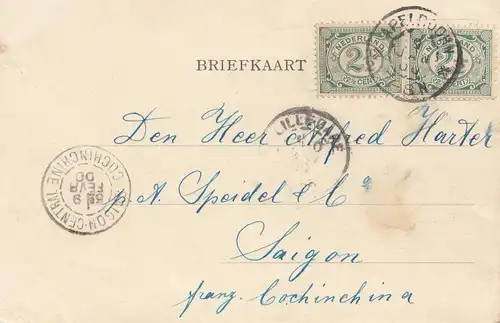 NEDERLAND
2½
2½ CENT
NEDERLAND
2½
2½ CENT
APELDOORN
BRIEFKAART
Den Heer Alfred Harter
p.A. Speidel & Co
Saigon
franz. Cochinchina
SAIGON-CENTRAL
COCHINCHINE
9
FEVR
00